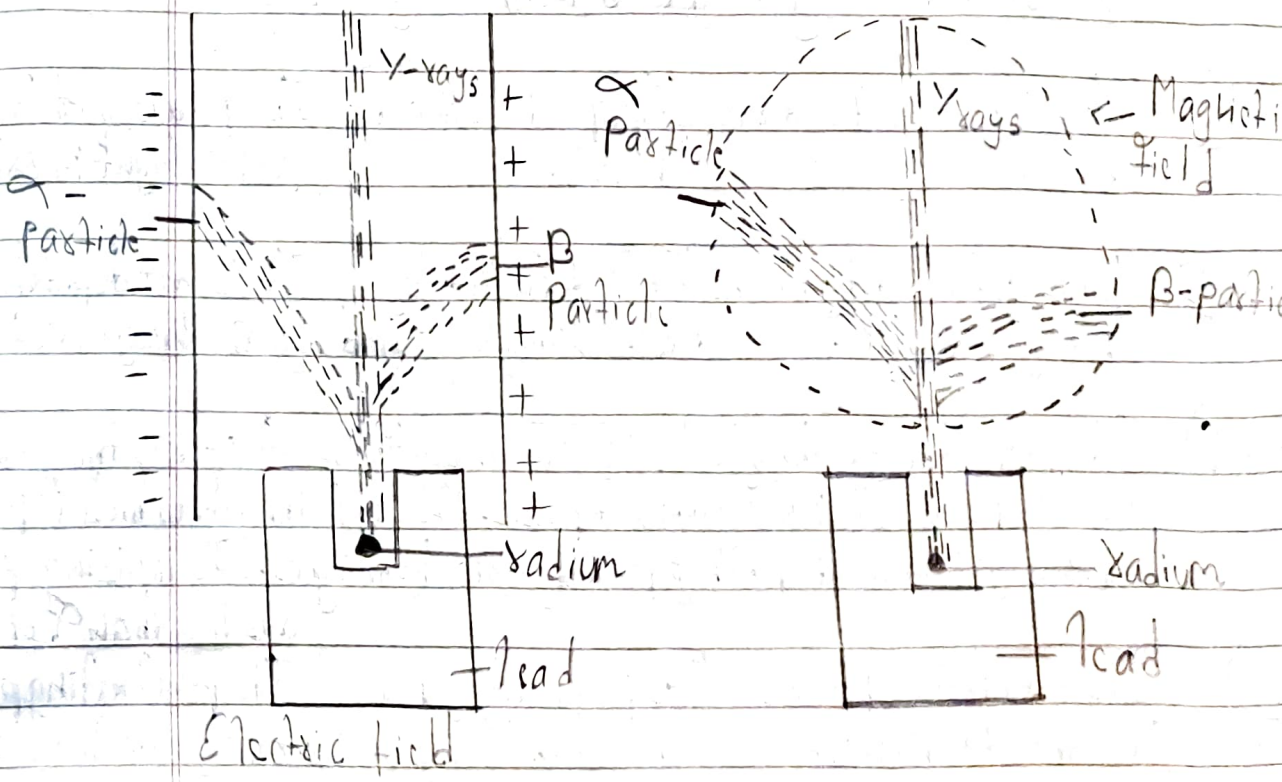 γ-rays
α-
particle
β
Particle
radium
lead
Electric field
α
Particle
γ
rays
Magneti
field
β-parti
radium
lead